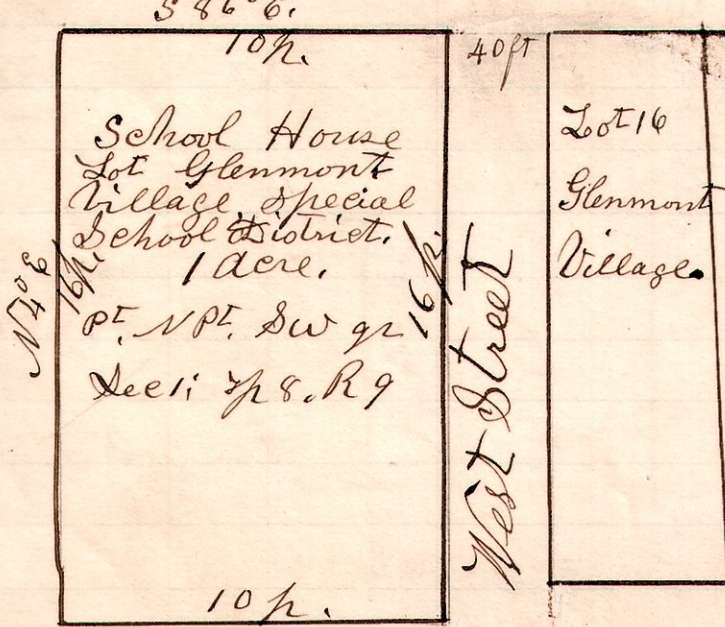 S 86° E.
10 p.
40 ft
School House
Lot Glenmont
Village special
School District.
1 acre.
Pt. N Pt. Sw qr
Sec 1; Tp 8. R 9
N 4° E
16 p.
16 p.
West Street
10 p.
Lot 16
Glenmont
Village.